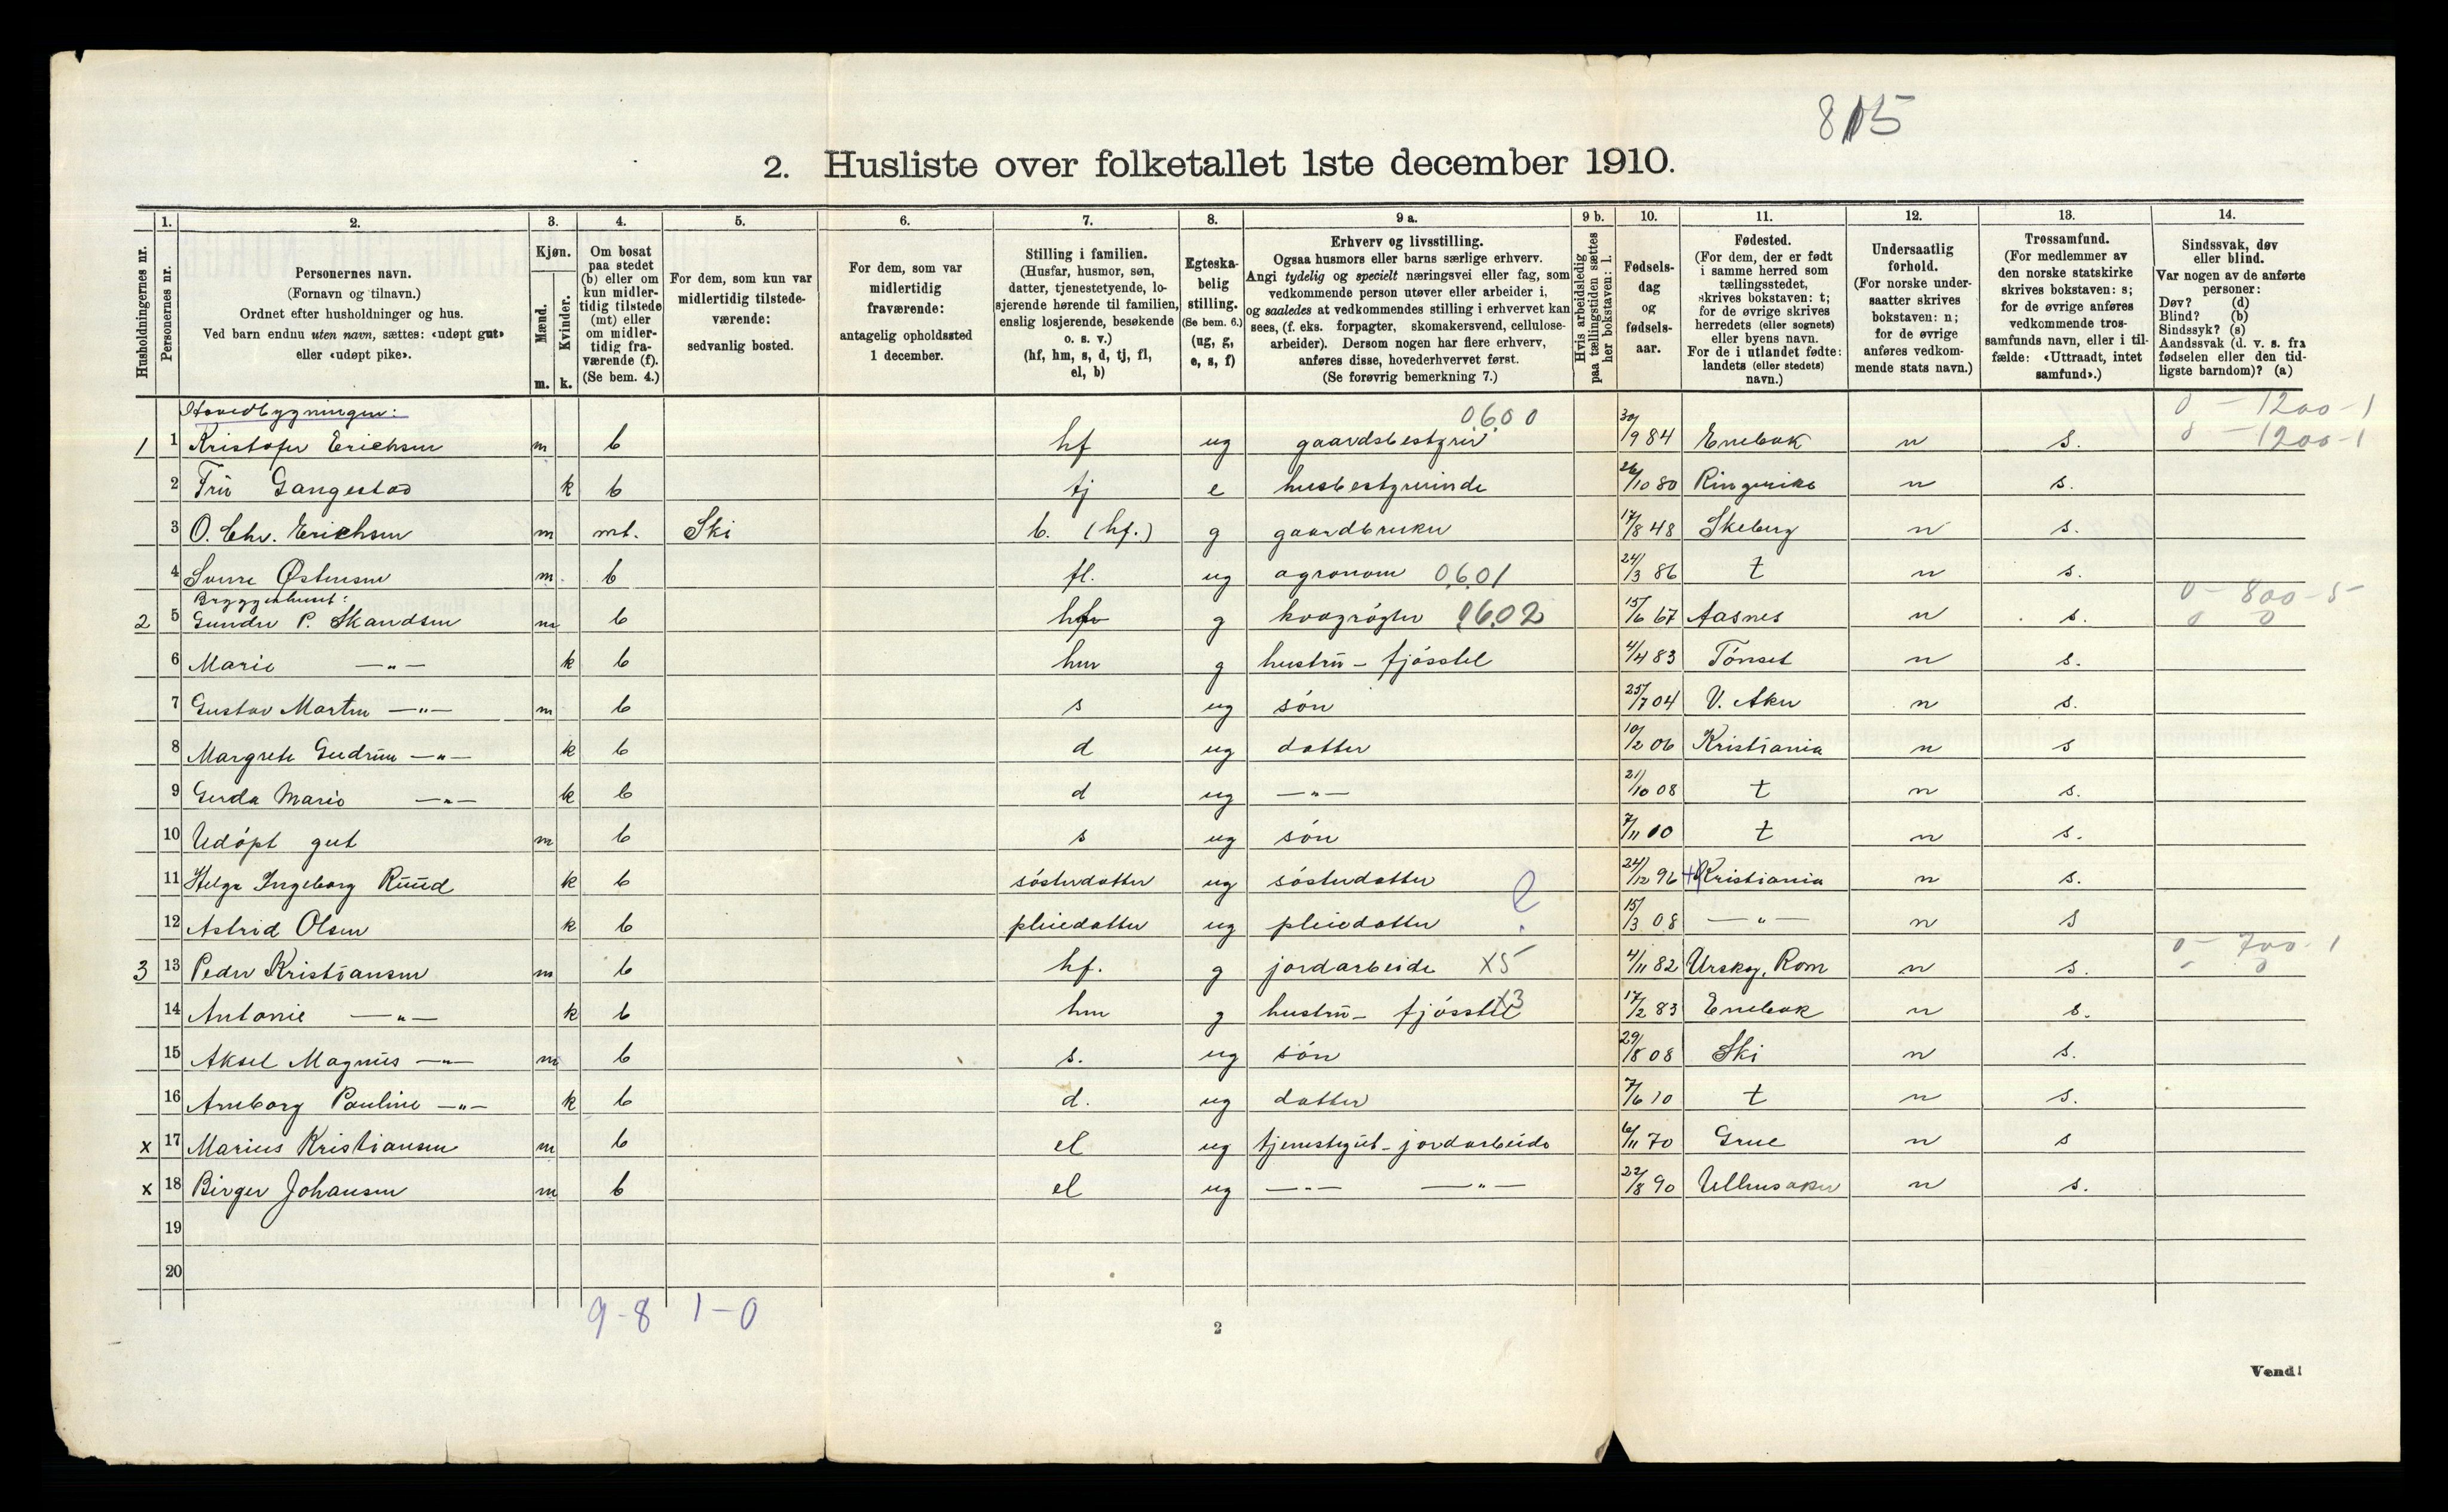 815
2. Husliste over folketallet 1ste december 1910.
Husholdningernes nr.
1. Personernes nr.
2. Personernes navn. (Fornavn og tilnavn.) Ordnet efter husholdninger og hus. Ved barn endnu uten navn, sættes: «udøpt gut» eller «udøpt pike».
3. Kjøn. Mænd. m. Kvinder. k.
4. Om bosat paa stedet (b) eller om kun midlertidig tilstede (mt) eller om midlertidig fraværende (f). (Se bem. 4.)
5. For dem, som kun var midlertidig tilstedeværende: sedvanlig bosted.
6. For dem, som var midlertidig fraværende: antagelig opholdssted 1 december.
7. Stilling i familien. (Husfar, husmor, søn, datter, tjenestetyende, losjerende hørende til familien, enslig losjerende, besøkende o. s. v.) (hf, hm, s, d, tj, fl, el, b)
8. Egteskabelig stilling. (Se bem. 6.) (ug, g, e, s, f)
9 a. Erhverv og livsstilling. Ogsaa husmors eller barns særlige erhverv. Angi tydelig og specielt næringsvei eller fag, som vedkommende person utøver eller arbeider i, og saaledes at vedkommendes stilling i erhvervet kan sees, (f. eks. forpagter, skomakersvend, cellulosearbeider). Dersom nogen har flere erhverv, anføres disse, hovederhvervet først. (Se forøvrig bemerkning 7.)
9 b. Hvis arbeidsledig paa tællingstiden sættes her bokstaven: l.
10. Fødselsdag og fødselsaar.
11. Fødested. (For dem, der er født i samme herred som tællingsstedet, skrives bokstaven: t; for de øvrige skrives herredets (eller sognets) eller byens navn. For de i utlandet fødte: landets (eller stedets) navn.)
12. Undersaatlig forhold. (For norske undersaatter skrives bokstaven: n; for de øvrige anføres vedkommende stats navn.)
13. Trossamfund. (For medlemmer av den norske statskirke skrives bokstaven: s; for de øvrige anføres vedkommende trossamfunds navn, eller i tilfælde: «Uttraadt, intet samfund».)
14. Sindssvak, døv eller blind. Var nogen av de anførte personer: Døv? (d) Blind? (b) Sindssyk? (s) Aandssvak (d. v. s. fra fødselen eller den tidligste barndom)? (a)
Hovedbygningen: 0600 0 - 1200 - 1
1 1 Kristofer Erichsen m b hf ug gaardsbestyrer 30/9 84 Enebak n s. 0 - 1200 - 1
2 Fru Gangestad k b tj e husbestyrerinde 26/10 80 Ringerike n s.
3 O. Chr. Erichsen m mt. Ski b. (hf.) g gaardbruker 17/8 48 Skeberg n s.
4 Sverre Østensen m b fl. ug agronom 0601 24/3 86 t n s.
Bryggerhuset: 0 - 800 - 5
2 5 Gunder P. Skandsen m b hf g kvægrøgter 0602 15/6 67 Aasnes n s. 0 0
6 Marie —"— k b hm g hustru - fjøsstel 4/4 83 Tönset n s.
7 Gustav Martin —"— m b s ug søn 25/7 04 V. Aker n s.
8 Margrete Gudrun —"— k b d ug datter 10/2 06 Kristiania n s
9 Gerda Marie —"— k b d ug —"— 21/10 08 t n s.
10 Udøpt gut m b s ug søn 7/11 10 t n s.
11 Helga Ingeborg Ruud k b søsterdatter ug søsterdatter 24/12 96 Kristiania n s.
12 Astrid Olsen k b pleiedatter ug pleiedatter 15/3 08 —"— n s
3 13 Peder Kristiansen m b hf. g jordarbeide X5 4/11 82 Urskog, Rom n s. 0 - 700 - 1 - 0
14 Antonie —"— k b hm g hustru - fjøsstel X3 17/2 83 Enebak n s.
15 Aksel Magnus —"— m b s. ug søn 29/8 08 Ski n s.
16 Arnborg Pauline —"— k b d. ug datter 7/6 10 t n s.
x 17 Marius Kristiansen m b el ug tjenstegut - jordarbeide 6/11 70 Grue n s
x 18 Birger Johansen m b el ug —"— —"— 22/8 90 Ullensaker n s.
19
20
9 - 8 1 - 0
2
Vend!